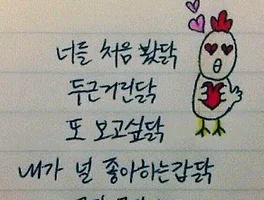 너를 처음 봤닭
두근거린닭
또 보고싶닭
내가 널 좋아하는갑닭